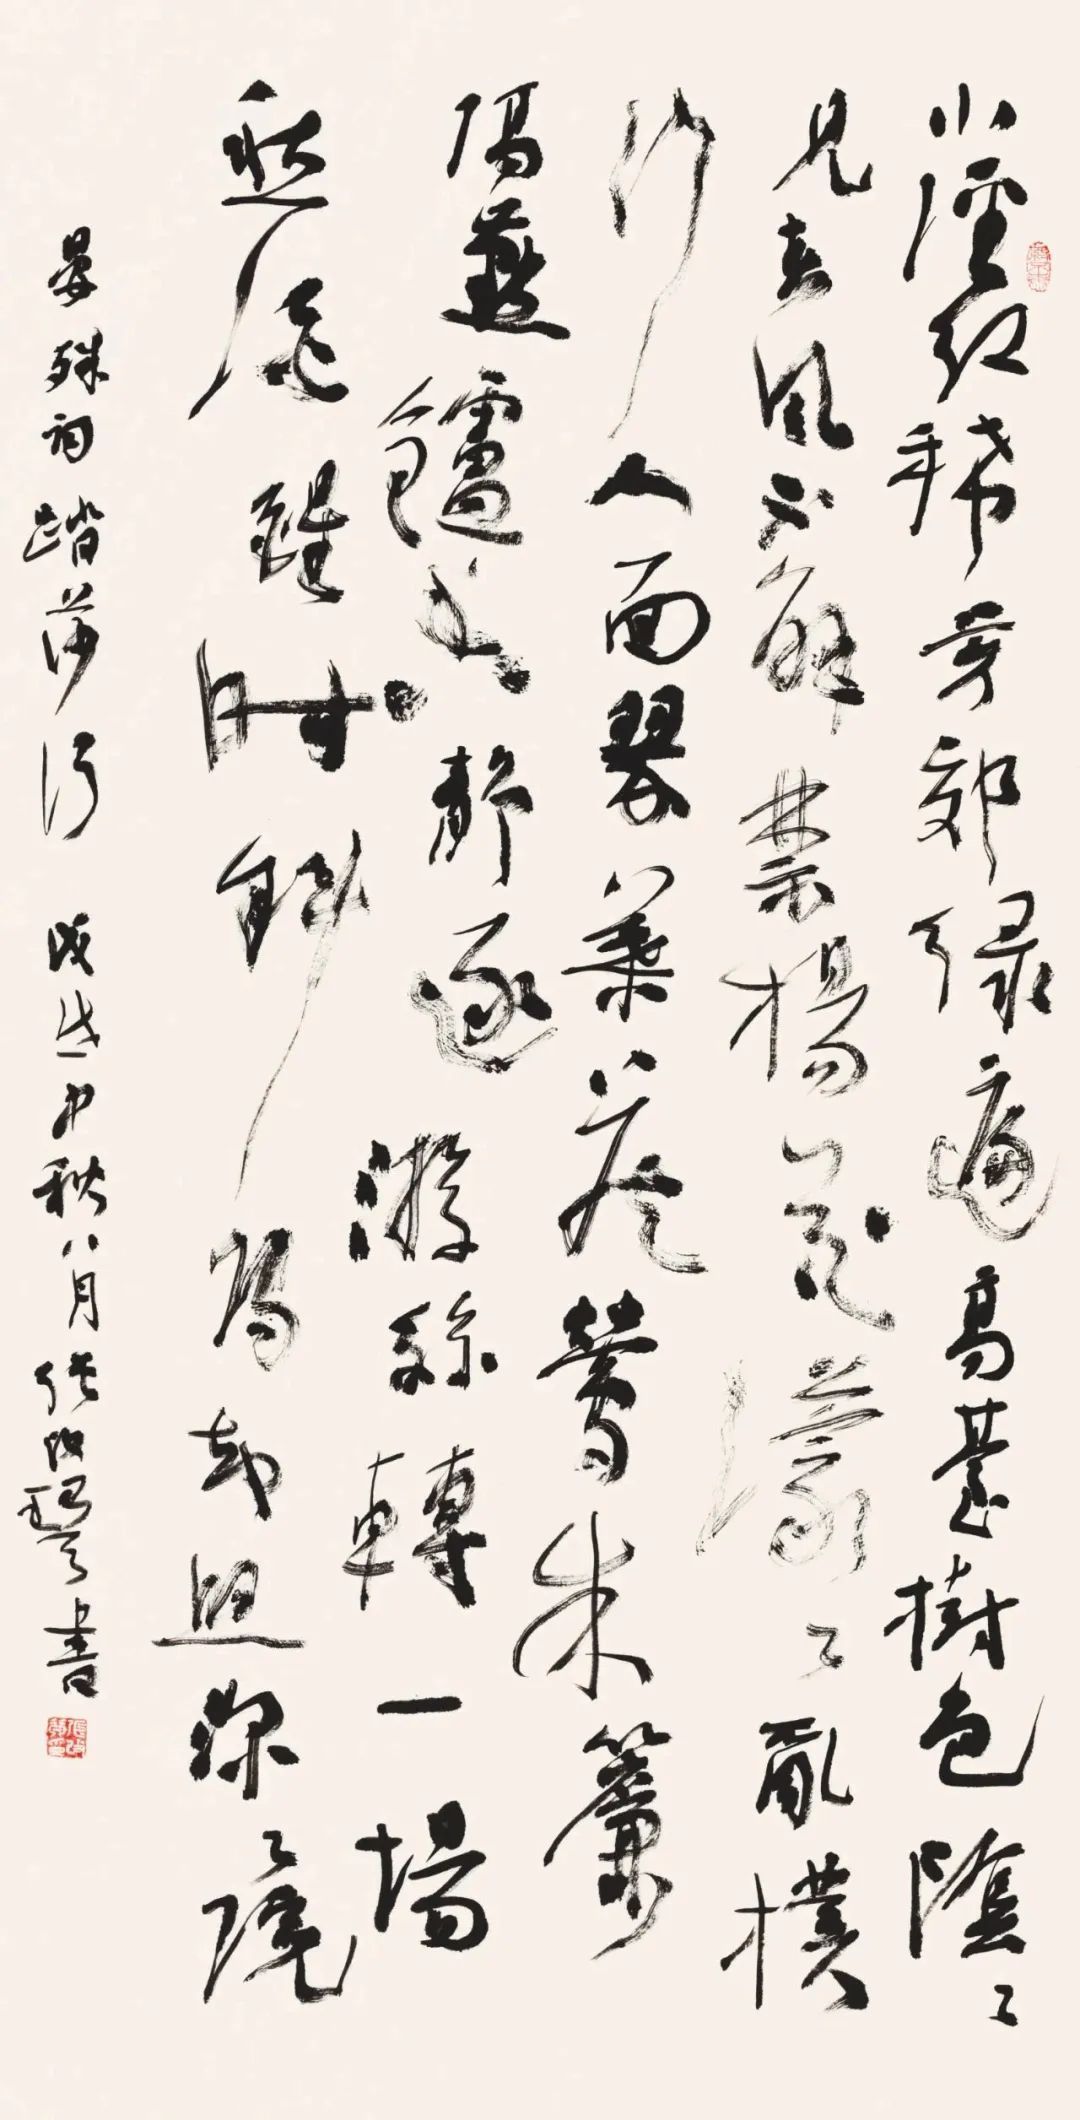 小徑紅稀芳郊绿遍高臺樹色陰〻
見春風不解禁楊花濛〻亂撲
行人面翠葉藏鶯朱簾
隔燕鑪香静逐游絲轉一場
愁夢醒時斜陽却照深〻院
晏殊詞踏莎行 戊戌中秋八月張改琴書